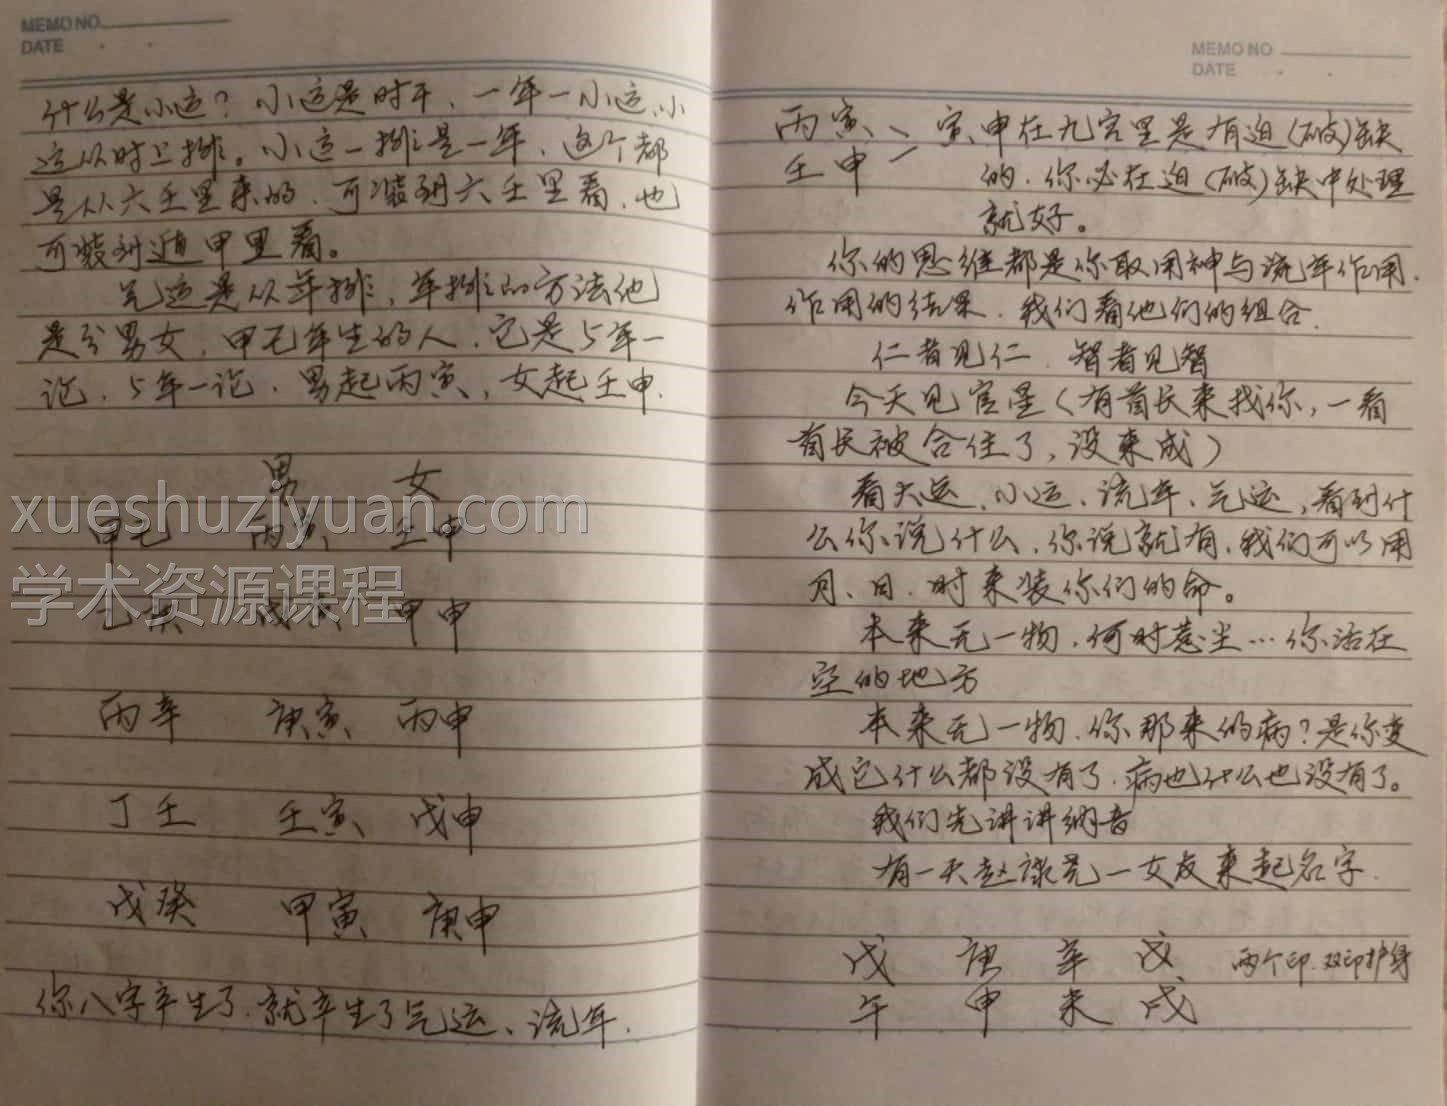 MEMO NO
DATE
什么是小运？小运是时干、一年一小运、小
运从时上排。小运一排是一年，这个都
是从六壬里来的，可装到六壬里看，也
可装到遁甲里看。
气运是从年排，年排的方法他
是分男女，甲己年生的人，它是5年一
论，5年一论，男起丙寅，女起壬申.
男 女
甲己 丙寅 壬申
乙庚 戊寅 甲申
丙辛 庚寅 丙申
丁壬 壬寅 戊申
戊癸 甲寅 庚申
你八字产生了，就产生了气运、流年.
xueshuziyuan.com
学术资源课程
MEMO NO
DATE
丙寅 寅申在九宫里是有迫(破)缺
壬申 的，你必在迫(破)缺中处理
就好。
你的思维都是你取用神与流年作用，
作用的结果，我们看他们的组合.
仁者见仁 智者见智
今天见官星(有首长来找你，一看
首长被合住了，没来成)
看大运、小运、流年、气运，看到什
么你说什么，你说就有，我们可以用
月、日、时来装你们的命。
本来无一物，何时惹尘…你活在
空的地方
本来无一物，你那来的病？是你变
成它什么都没有了，病也什么也没有了。
我们先讲讲纳音
有一天赵谋见一女友来起名字.
戊 庚 辛 戊 两个印，双印护身
午 申 未 戌